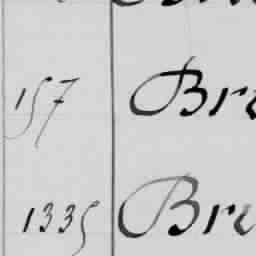 157 Bre
1335 Bre